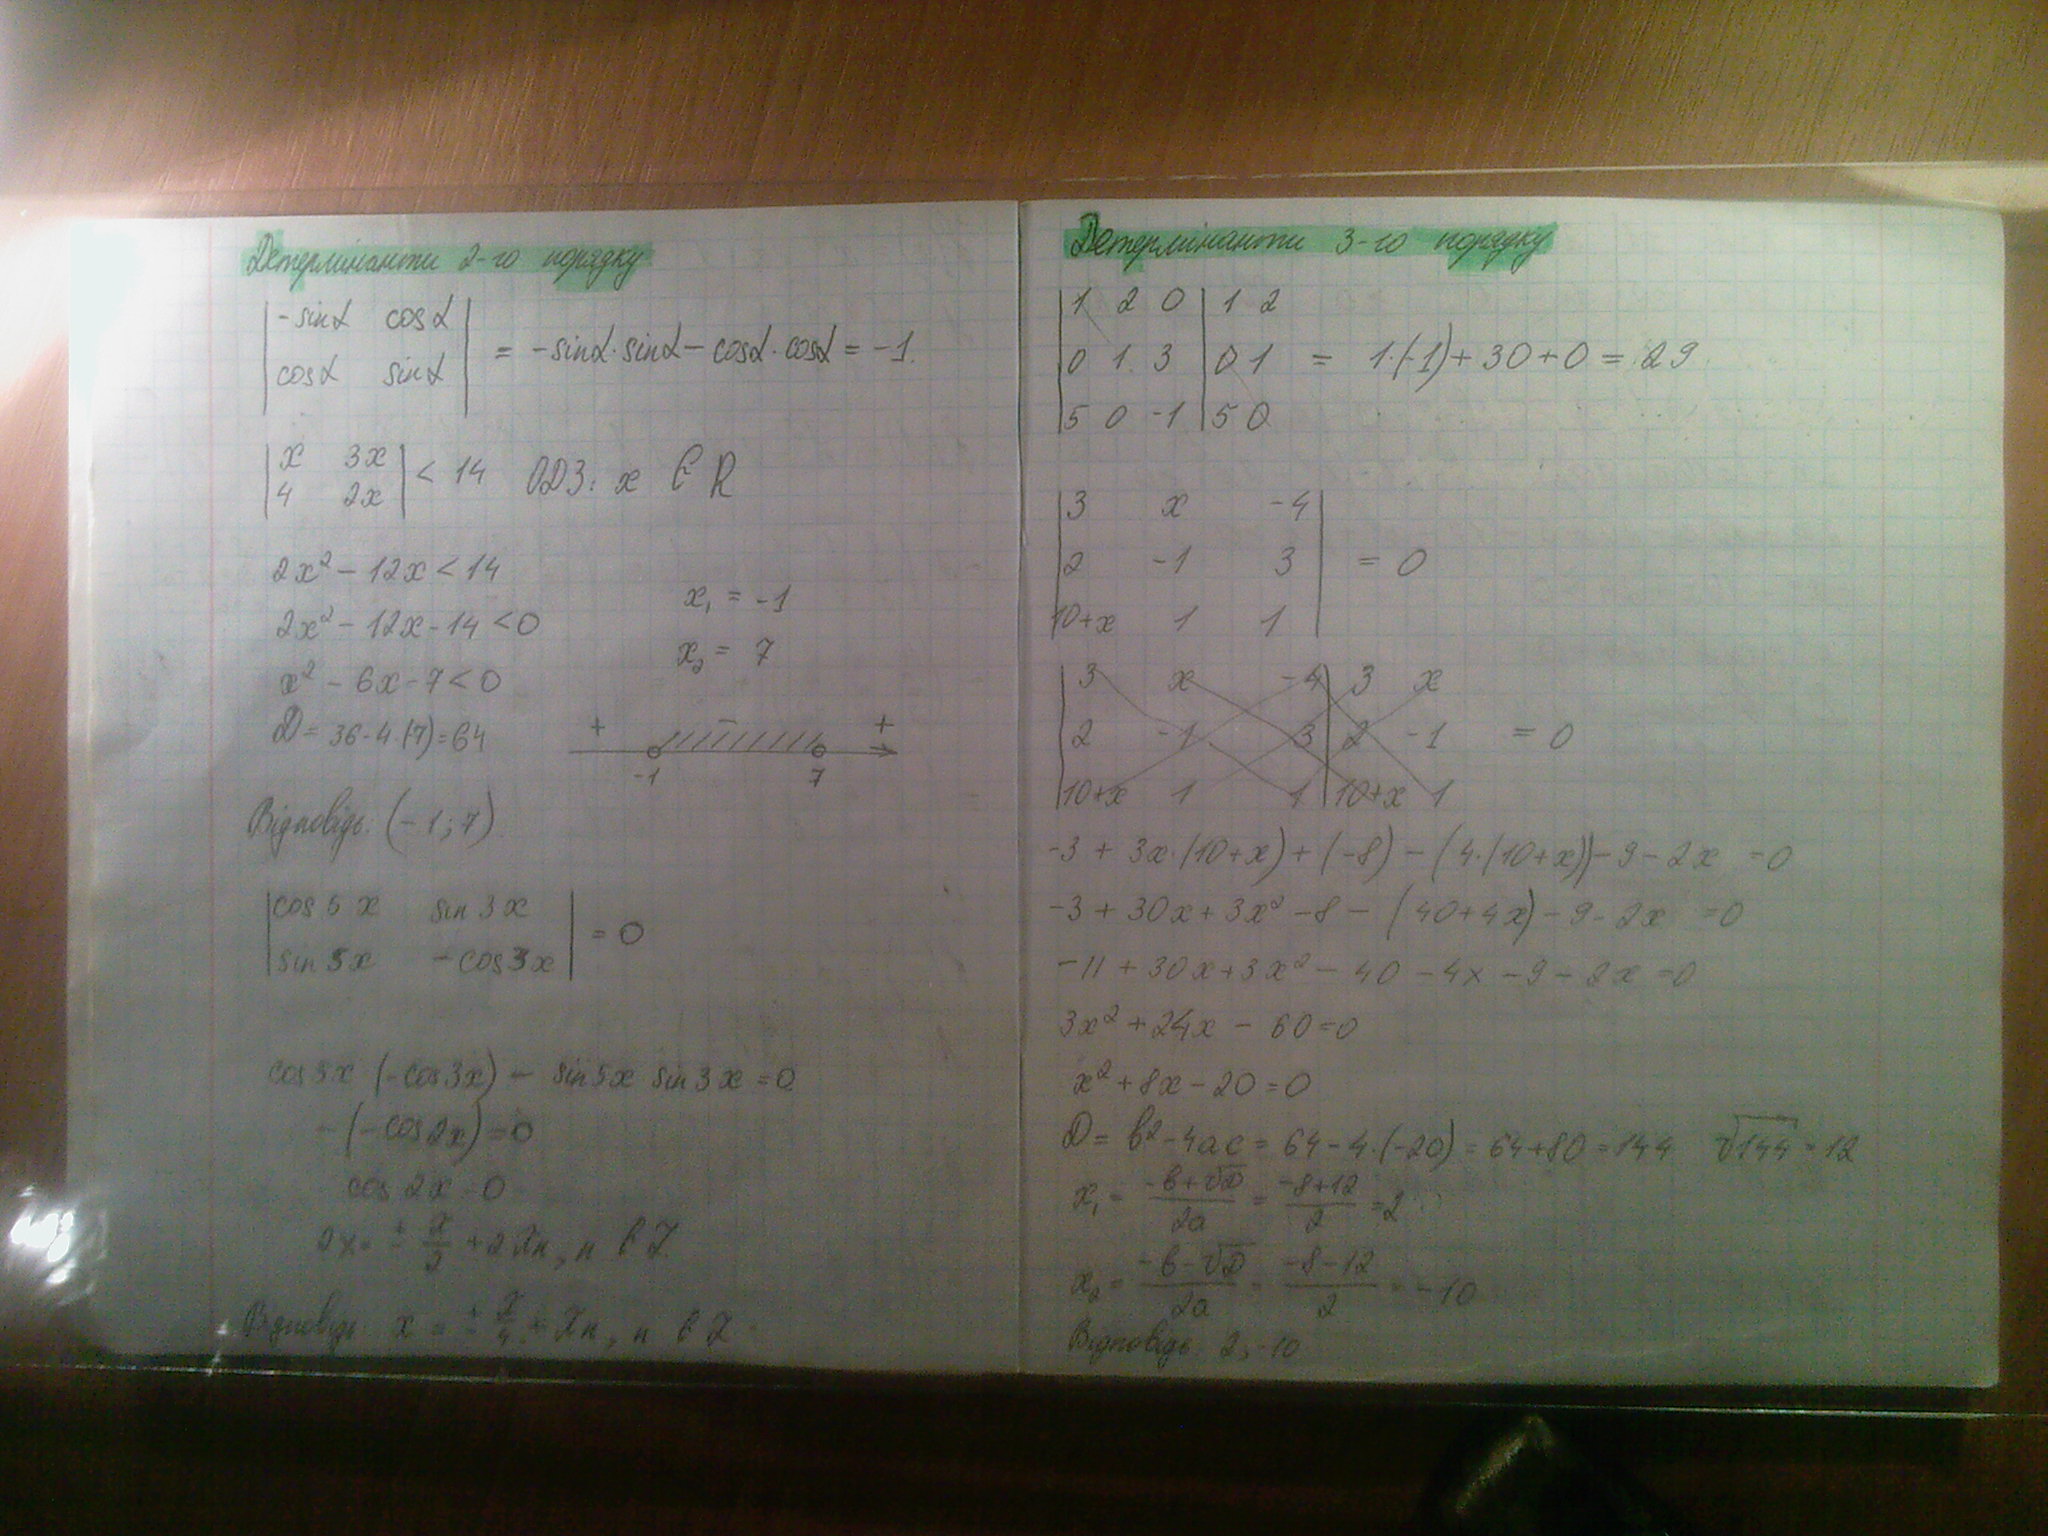 Детермінанти 2-го порядку
| -sinα cosα |
| cosα sinα | = -sinα·sinα - cosα·cosα = -1.
| x 3x |
| 4 2x | < 14 ОДЗ: x ∈ R
2x² - 12x < 14
2x² - 12x - 14 < 0
x² - 6x - 7 < 0
D = 36 - 4·(7) = 64
x₁ = -1
x₂ = 7
+ - +
-1 7
Відповідь: (-1; 7)
| cos5x sin3x |
| sin5x -cos3x | = 0
cos5x (-cos3x) - sin5x sin3x = 0
-(-cos2x) = 0
cos 2x = 0
+ 2πn, n ∈ Z
Відповідь: x = ± π/4 + πn, n ∈ Z
Детермінанти 3-го порядку
| 1 2 0 | 1 2
| 0 1 3 | 0 1 = 1·(-1) + 30 + 0 = 29
| 5 0 -1 | 5 0
| 3 x -4 |
| 2 -1 3 | = 0
| 10+x 1 1 |
| 3 x -4 | 3 x
| 2 -1 3 | 2 -1 = 0
| 10+x 1 1 | 10+x 1
-3 + 3x·(10+x) + (-8) - (4·(10+x)) - 9 - 2x = 0
-3 + 30x + 3x² - 8 - (40+4x) - 9 - 2x = 0
-11 + 30x + 3x² - 40 - 4x - 9 - 2x = 0
3x² + 24x - 60 = 0
x² + 8x - 20 = 0
D = b² - 4ac = 64 - 4·(-20) = 64 + 80 = 144 √144 = 12
x₁ = (-b+√D)/2a = (-8+12)/2 = 2
x₂ = (-b-√D)/2a = (-8-12)/2 = -10
Відповідь: 2; -10